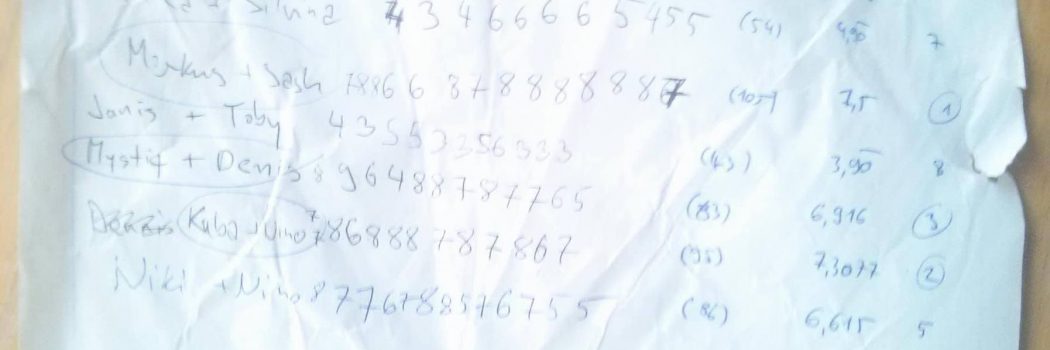 4 3 4 6 6 6 6 5 4 5 5 (54) 4,90 7
Markus + Sash 7 8 8 6 6 8 7 8 8 8 8 8 8 8 7 (105) 7,5 1
Janis + Toby 4 3 5 5 3 3 5 6 3 3 3 (43) 3,90 8
Mystiq + Denis 8 9 6 4 8 8 7 8 7 7 6 5 (83) 6,916 3
Kuba + Nino 7 7 8 6 8 8 8 7 8 7 8 6 7 (95) 7,3077 2
Niki + Nino 8 7 7 6 7 8 8 5 7 6 7 5 5 (86) 6,615 5